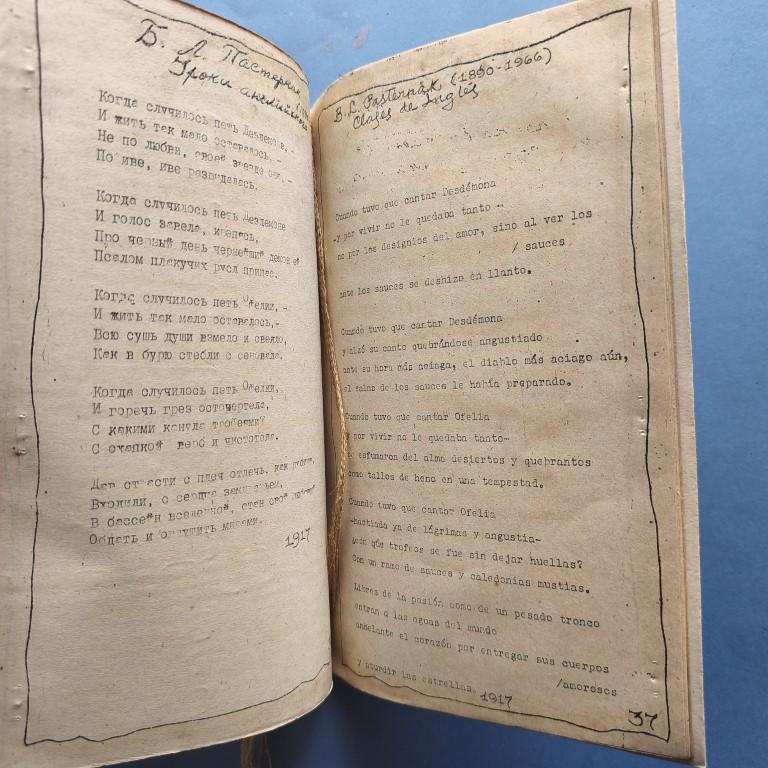 Б. Л. Пастернак
Уроки английского
Когда случилось петь Дездемоне, -
И жить так мало оставалось, -
Не по любви, своей звезде она, -
По иве, иве разрыдалась.
Когда случилось петь Дездемоне
И голос завела, крепясь,
Про черный день чернейший демон ей
Псалом плакучих русл припас.
Когда случилось петь Офелии, -
И жить так мало оставалось,-
Всю сушь души взмело и свеяло,
Как в бурю стебли с сеновала.
Когда случилось петь Офелии,
И горечь грез осточертела,
С какими канула трофеями?
С охапкой верб и чистотела.
Дав страсти с плеч отлечь, как рубищу,
Входили, с сердца замираньем,
В бассейн вселенной, стан свой любящий
Обдать и оглушить мирами.
1917
B. L. Pasternák (1890-1966)
Clases de Inglés
Cuando tuvo que cantar Desdémona
-y por vivir no le quedaba tanto-
no por los designios del amor, sino al ver los
/ sauces
ante los sauces se deshizo en llanto.
Cuando tuvo que cantar Desdémona
y alzó su canto quebrándose angustiado
ante su hora más aciaga, el diablo más aciago aún,
el salmo de los sauces le había preparado.
Cuando tuvo que cantar Ofelia
y por vivir no le quedaba tanto-
se esfumaron del alma desiertos y quebrantos
como tallos de heno en una tempestad.
Cuando tuvo que cantar Ofelia
-hastiada ya de lágrimas y angustia-
¿con qué trofeos se fue sin dejar huellas?
Con un ramo de sauces y caledonias mustias.
Libres de la pasión como de un pesado tronco
entran a las aguas del mundo
anhelante el corazón por entregar sus cuerpos
/amorosos
y aturdir las estrellas. 1917
37